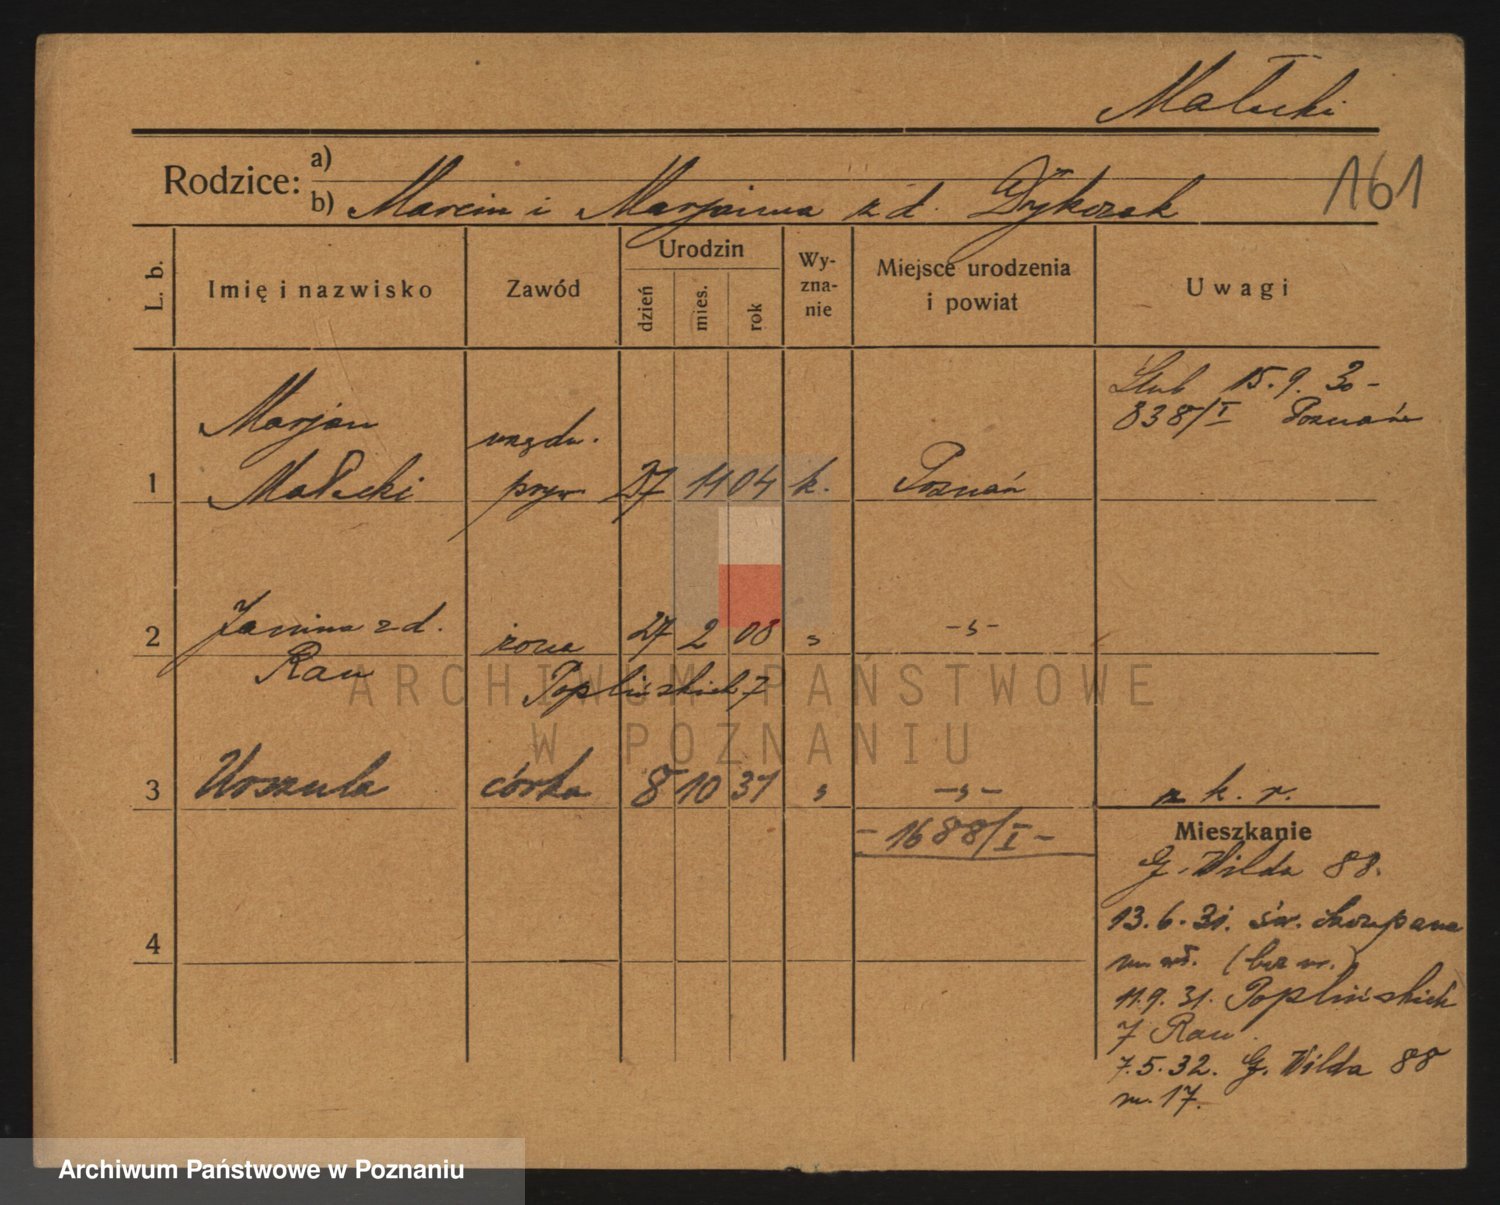 Małecki
161
Rodzice: a)
b) Marcin i Marjanna z d.
L. b.
Imię i nazwisko
Zawód
Urodzin
dzień
mies.
rok
Wy-
zna-
nie
Miejsce urodzenia
i powiat
Uwagi
Ślub 15.9.30 -
838/I Poznań
1
Marjan
Małecki
urzędn.
pryw.
27 11 04 k. Poznań
2
Janina z d.
Rau
żona
27 2 08 " -"-
Poplińskich 7
3 Urszula córka 8 10 31 " -"-
z k. r.
- 1688/I -
Mieszkanie
G. Wilda 88.
13.6.31. św. Szczepana
(bez nr.)
11.9.31. Poplińskich
7 Rau.
7.5.32. G. Wilda 88
m. 17.
4
ARCHIWUM PAŃSTWOWE
W POZNANIU
Archiwum Państwowe w Poznaniu